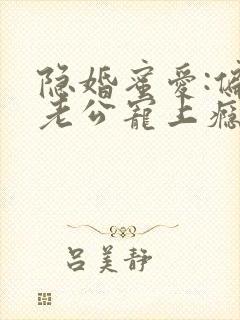 隐婚蜜爱:偏
老公宠上瘾
吕美静